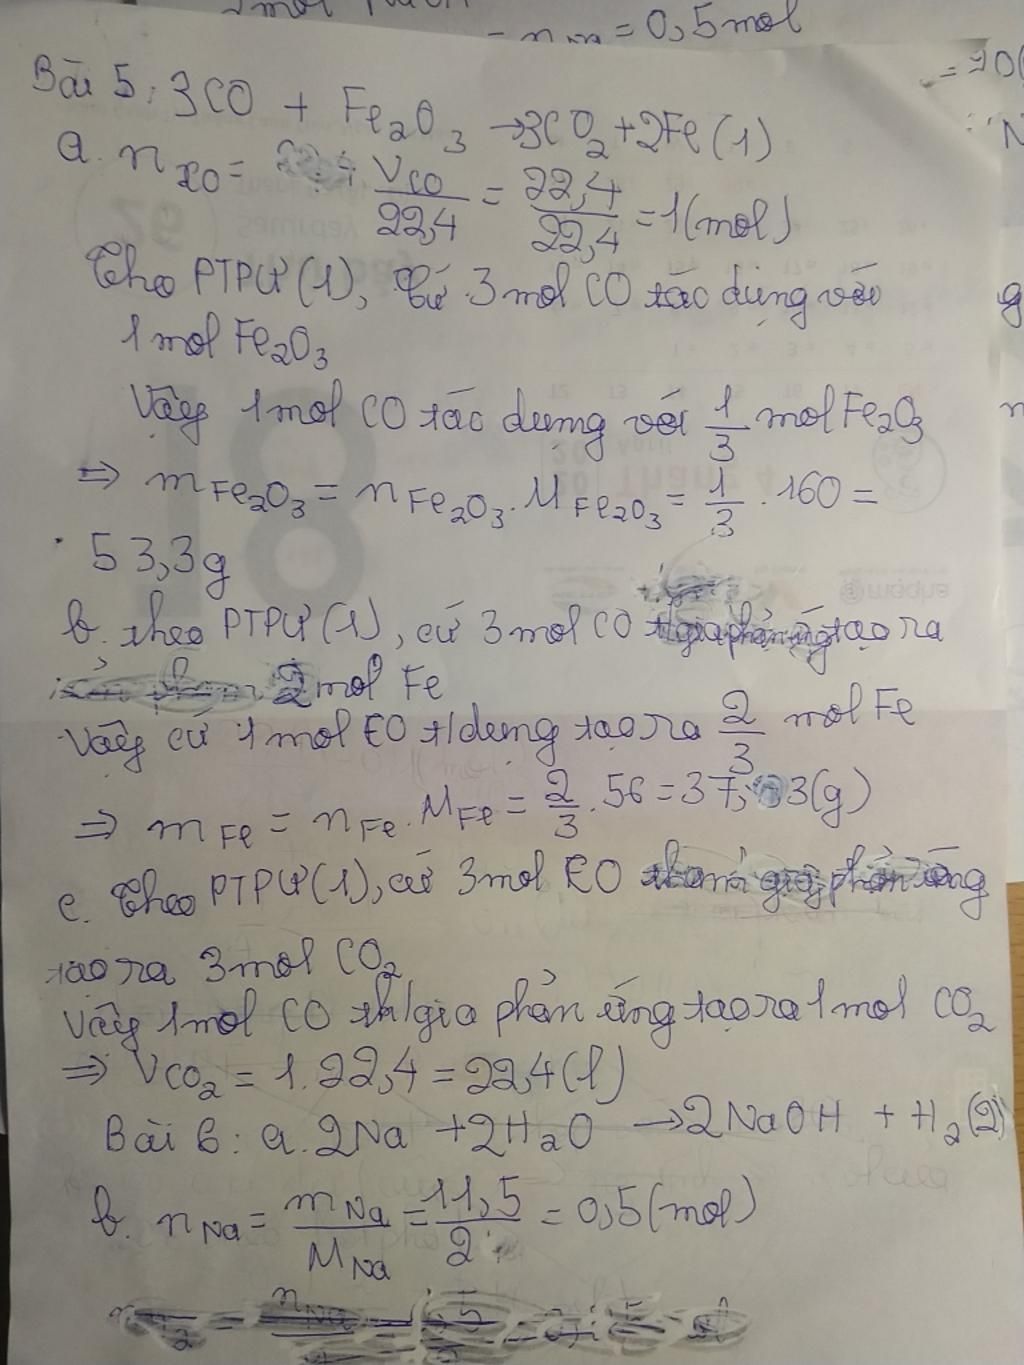 = 0,5mol
Bài 5: 3CO + Fe₂O₃ → 3CO₂ + 2Fe (1)
a. n_CO = V_CO/22,4 = 22,4/22,4 = 1(mol)
Theo PTPƯ(1), Cứ 3mol CO tác dụng với
1mol Fe₂O₃
Vậy 1mol CO tác dụng với 1/3 mol Fe₂O₃
⇒ m_Fe₂O₃ = n_Fe₂O₃ . M_Fe₂O₃ = 1/3 . 160 =
53,3g
b. theo PTPƯ(1), cứ 3mol CO t/gia phản ứng tạo ra
2mol Fe
Vậy cứ 1mol CO t/dụng tạo ra 2/3 mol Fe
⇒ m_Fe = n_Fe . M_Fe = 2/3 . 56 = 37,33(g)
c. Theo PTPƯ(1), cứ 3mol CO tham gia phản ứng
tạo ra 3mol CO₂
Vậy 1mol CO th/gia phản ứng tạo ra 1mol CO₂
⇒ V_CO₂ = 1.22,4 = 22,4(l)
Bài 6: a. 2Na + 2H₂O → 2NaOH + H₂ (2)
b. n_Na = m_Na/M_Na = 11,5/2 = 0,5(mol)